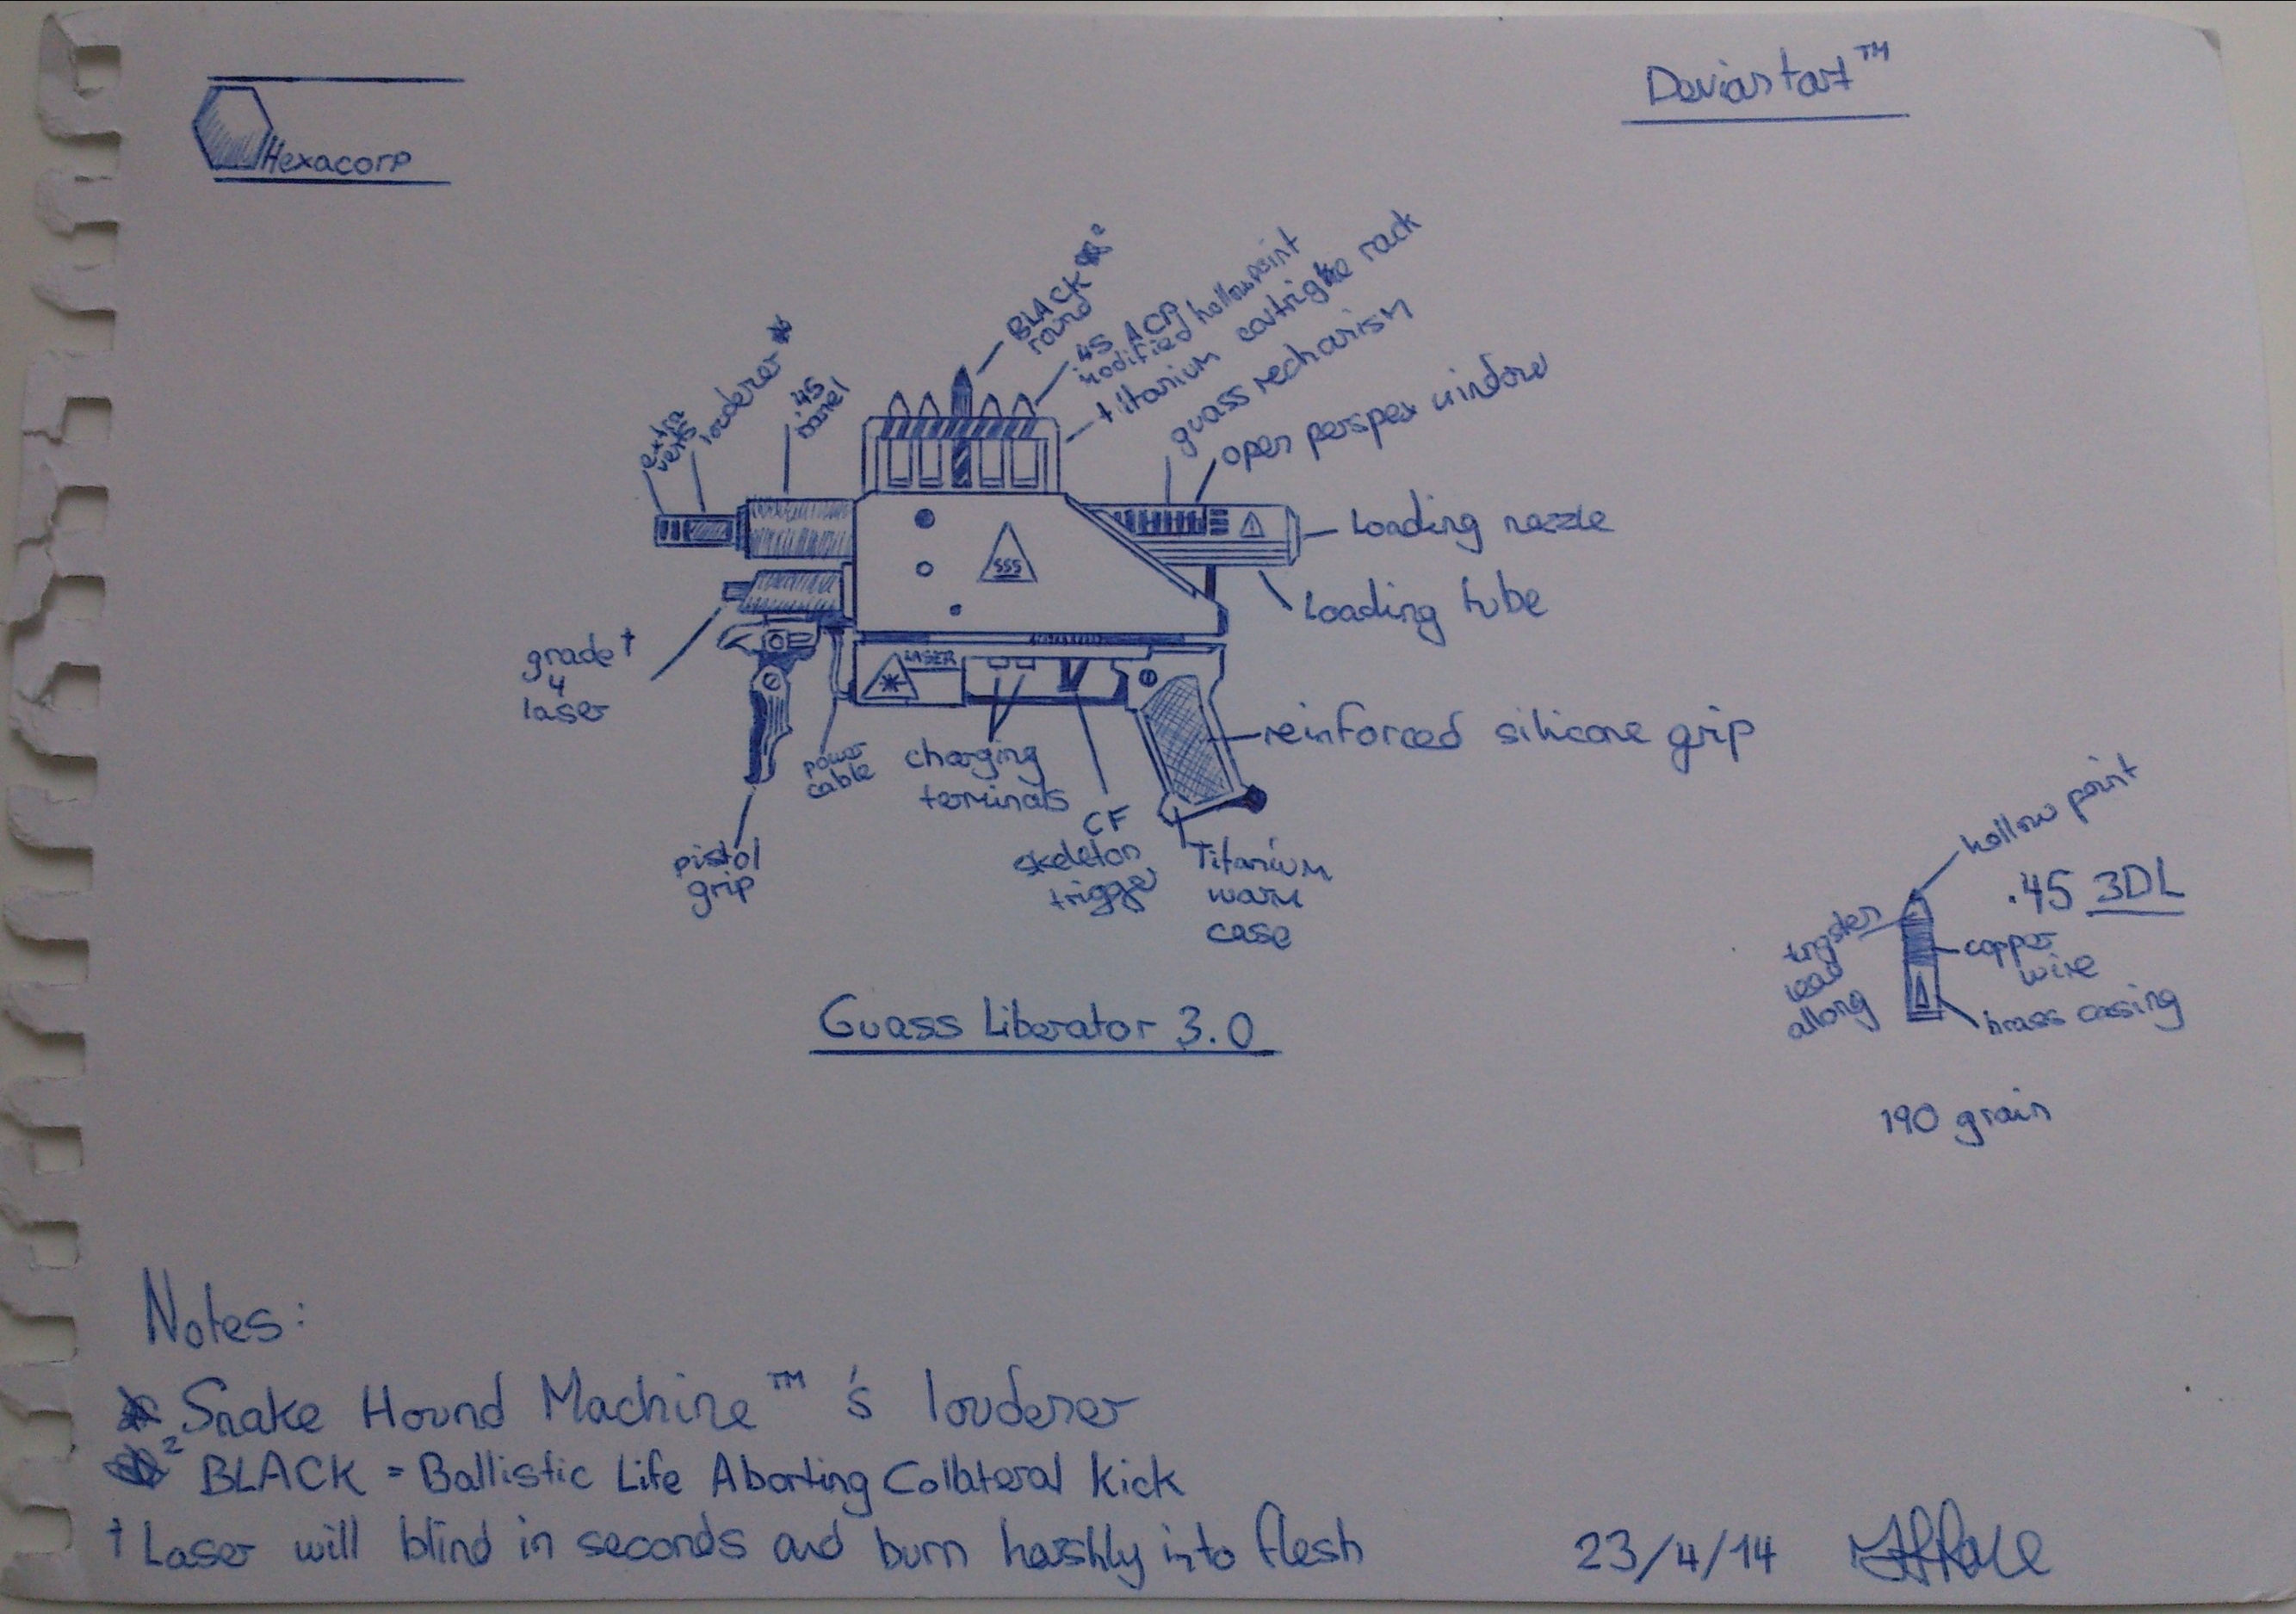 Hexacorp
Deviantart™
BLACK
round
.45 ACP
modified hollowpoint
titanium
rack
guass mechanism
open perspex window
extra
vents
louderer *
.45
barrel
Loading nozzle
Loading tube
SSS
LASER
grade †
4
laser
power
cable
charging
terminals
CF
skeleton
trigger
Titanium
case
reinforced silicone grip
pistol
grip
Guass Liberator 3.0
hollow point
.45 3DL
copper
wire
allong
brass casing
190 grain
Notes:
* Snake Hound Machine™'s louderer
² BLACK = Ballistic Life Aborting Collateral Kick
† Laser will blind in seconds and burn harshly into flesh
23/4/14